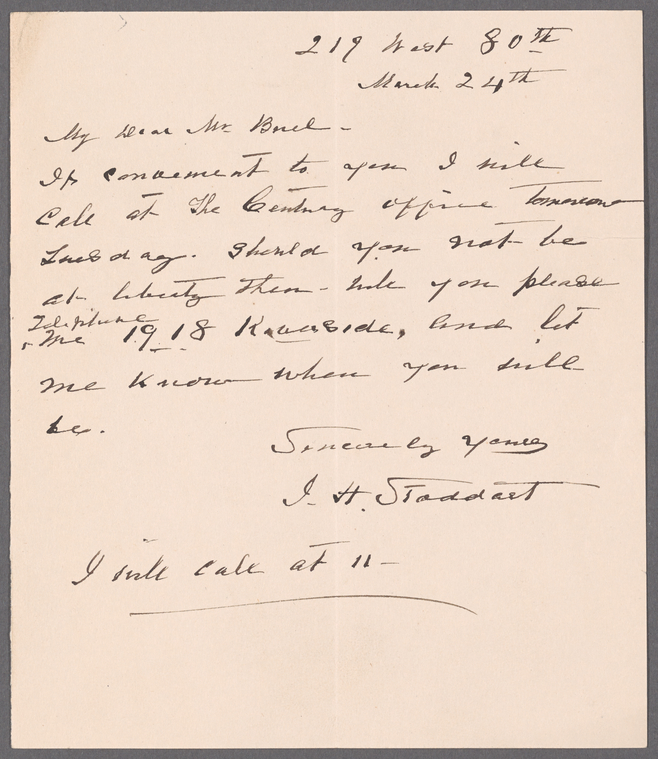 219 West 80th
March 24th
My Dear Mr Buel -
If convenient to you I will
Call at The Century office tomorrow
Tuesday. Should you not be
at liberty then - will you please
Telephone
me 1918 Riverside, and let
me know when you will
be.
Sincerely yours
J. H. Stoddart
I will call at 11 -